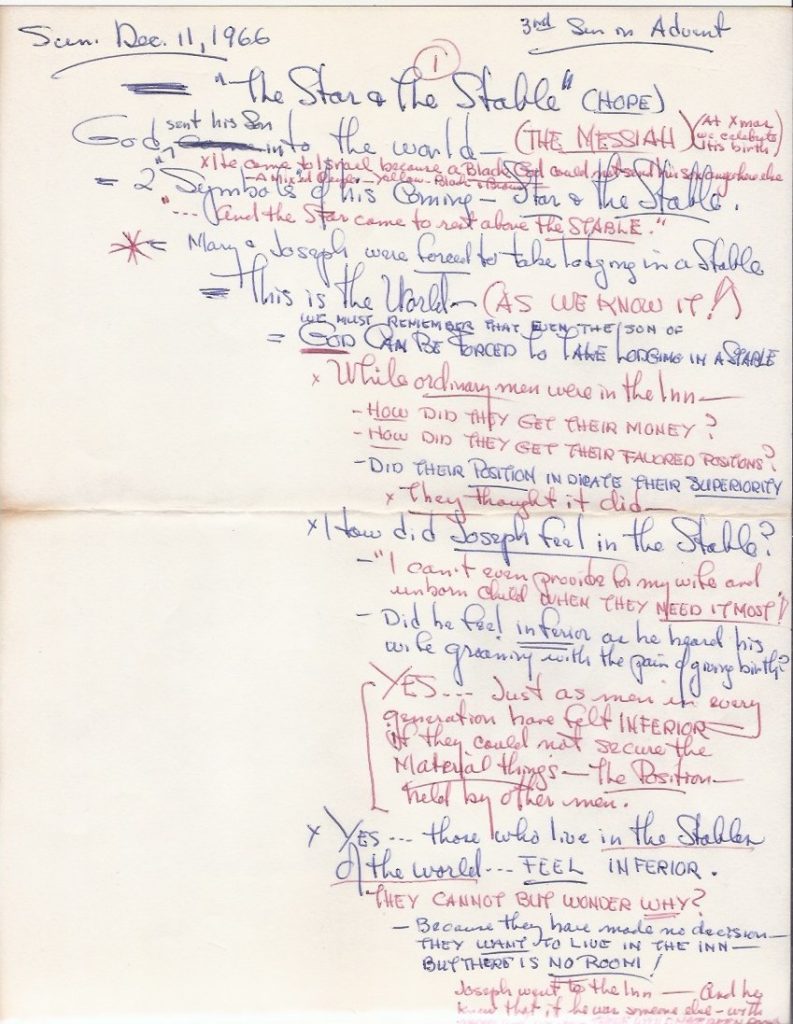 Sun. Dec. 11, 1966
3rd Sun in Advent
1
"The Star & The Stable" (HOPE)
God sent his Son into the world— (THE MESSIAH) (At Xmas we celebrate His birth)
x He came to Israel because a Black God could not send His son anywhere else
A Mixed - Yellow - Black & Brown
= 2 Symbols of his Coming — Star & the Stable.
"--- And the Star came to rest above the STABLE."
= Mary & Joseph were forced to take lodging in a Stable
= This is the World— (AS WE KNOW IT!)
WE MUST REMEMBER THAT EVEN THE SON OF
= GOD CAN BE FORCED TO TAKE LODGING IN A STABLE
x While ordinary men were in the Inn—
- HOW DID THEY GET THEIR MONEY?
- HOW DID THEY GET THEIR FAVORED POSITIONS?
- DID THEIR POSITION INDICATE THEIR SUPERIORITY
x They thought it did—
x How did Joseph feel in the Stable?
- "I can't even provide for my wife and
unborn child WHEN THEY NEED IT MOST"!
- Did he feel inferior as he heard his
wife groaning with the pain of giving birth?
YES--- Just as men in every
generation have felt INFERIOR—
if they could not secure the
Material things — The Position—
held by other men.
x YES--- those who live in the Stables
of the world--- FEEL INFERIOR.
THEY CANNOT BUT WONDER WHY?
- Because they have made no decision—
THEY WANT TO LIVE IN THE INN—
BUT THERE IS NO ROOM!
Joseph went to the Inn — And he
knew that if he was someone else - with